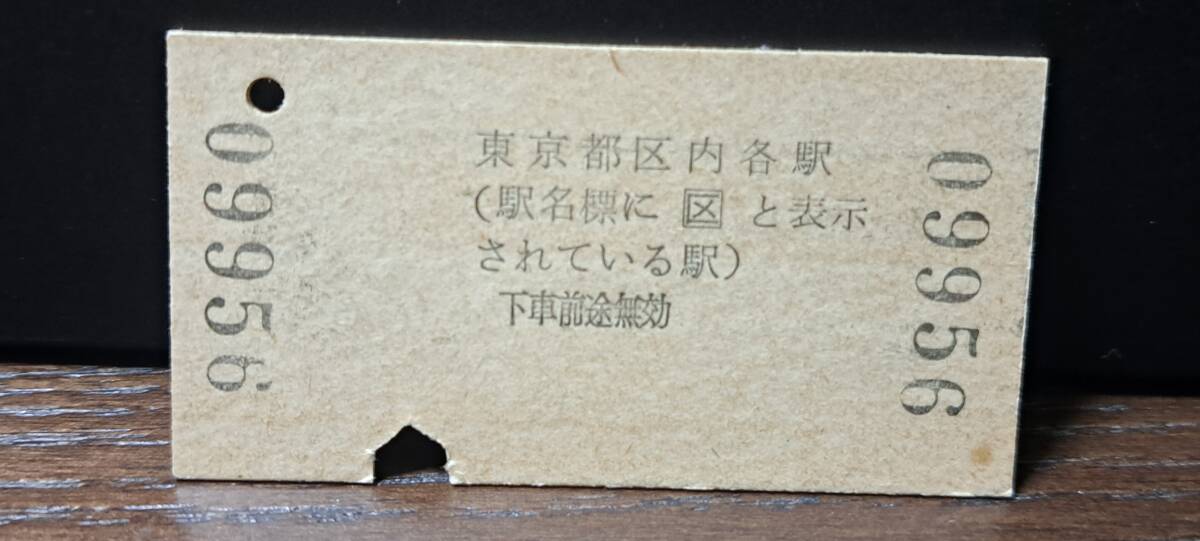 09956
東京都区内各駅
(駅名標に 区 と表示
されている駅)
下車前途無効
09956